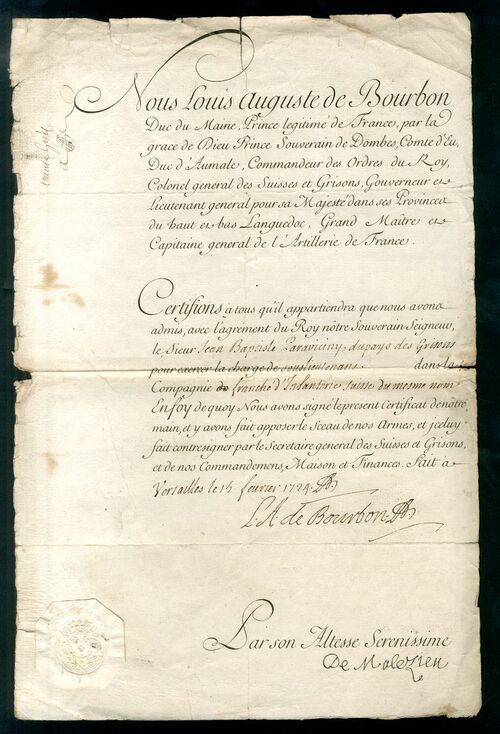 Nous Louis Auguste de Bourbon
Duc du Maine, Prince legitimé de France, par la
grace de Dieu Prince Souverain de Dombes, Comte d'Eu,
Duc d'Aumale, Commandeur des Ordres du Roy,
Colonel general des Suisses et Grisons, Gouverneur et
Lieutenant general pour sa Majesté dans ses Provinces
du haut et bas Languedoc, Grand Maître et
Capitaine general de l'Artillerie de France.
Certifions à tous qu'il appartiendra que nous avons
admis, avec l'agrément du Roy nôtre Souverain Seigneur,
le Sieur Jean Baptiste Paraviciny, du pays des Grisons
pour exercer la charge de souslieutenant dans la
Compagnie franche d'Infanterie suisse du mesme nom
En foy de quoy Nous avons signé le present Certificat de nôtre
main, et y avons fait apposer le Sceau de nos Armes, et iceluy
fait contresigner par le Secretaire general des Suisses et Grisons,
et de nos Commandemens, Maison et Finances. Fait à
Versailles le 15 fevrier 1724
L. A. de Bourbon
Par son Altesse Serenissime
De Malezieu